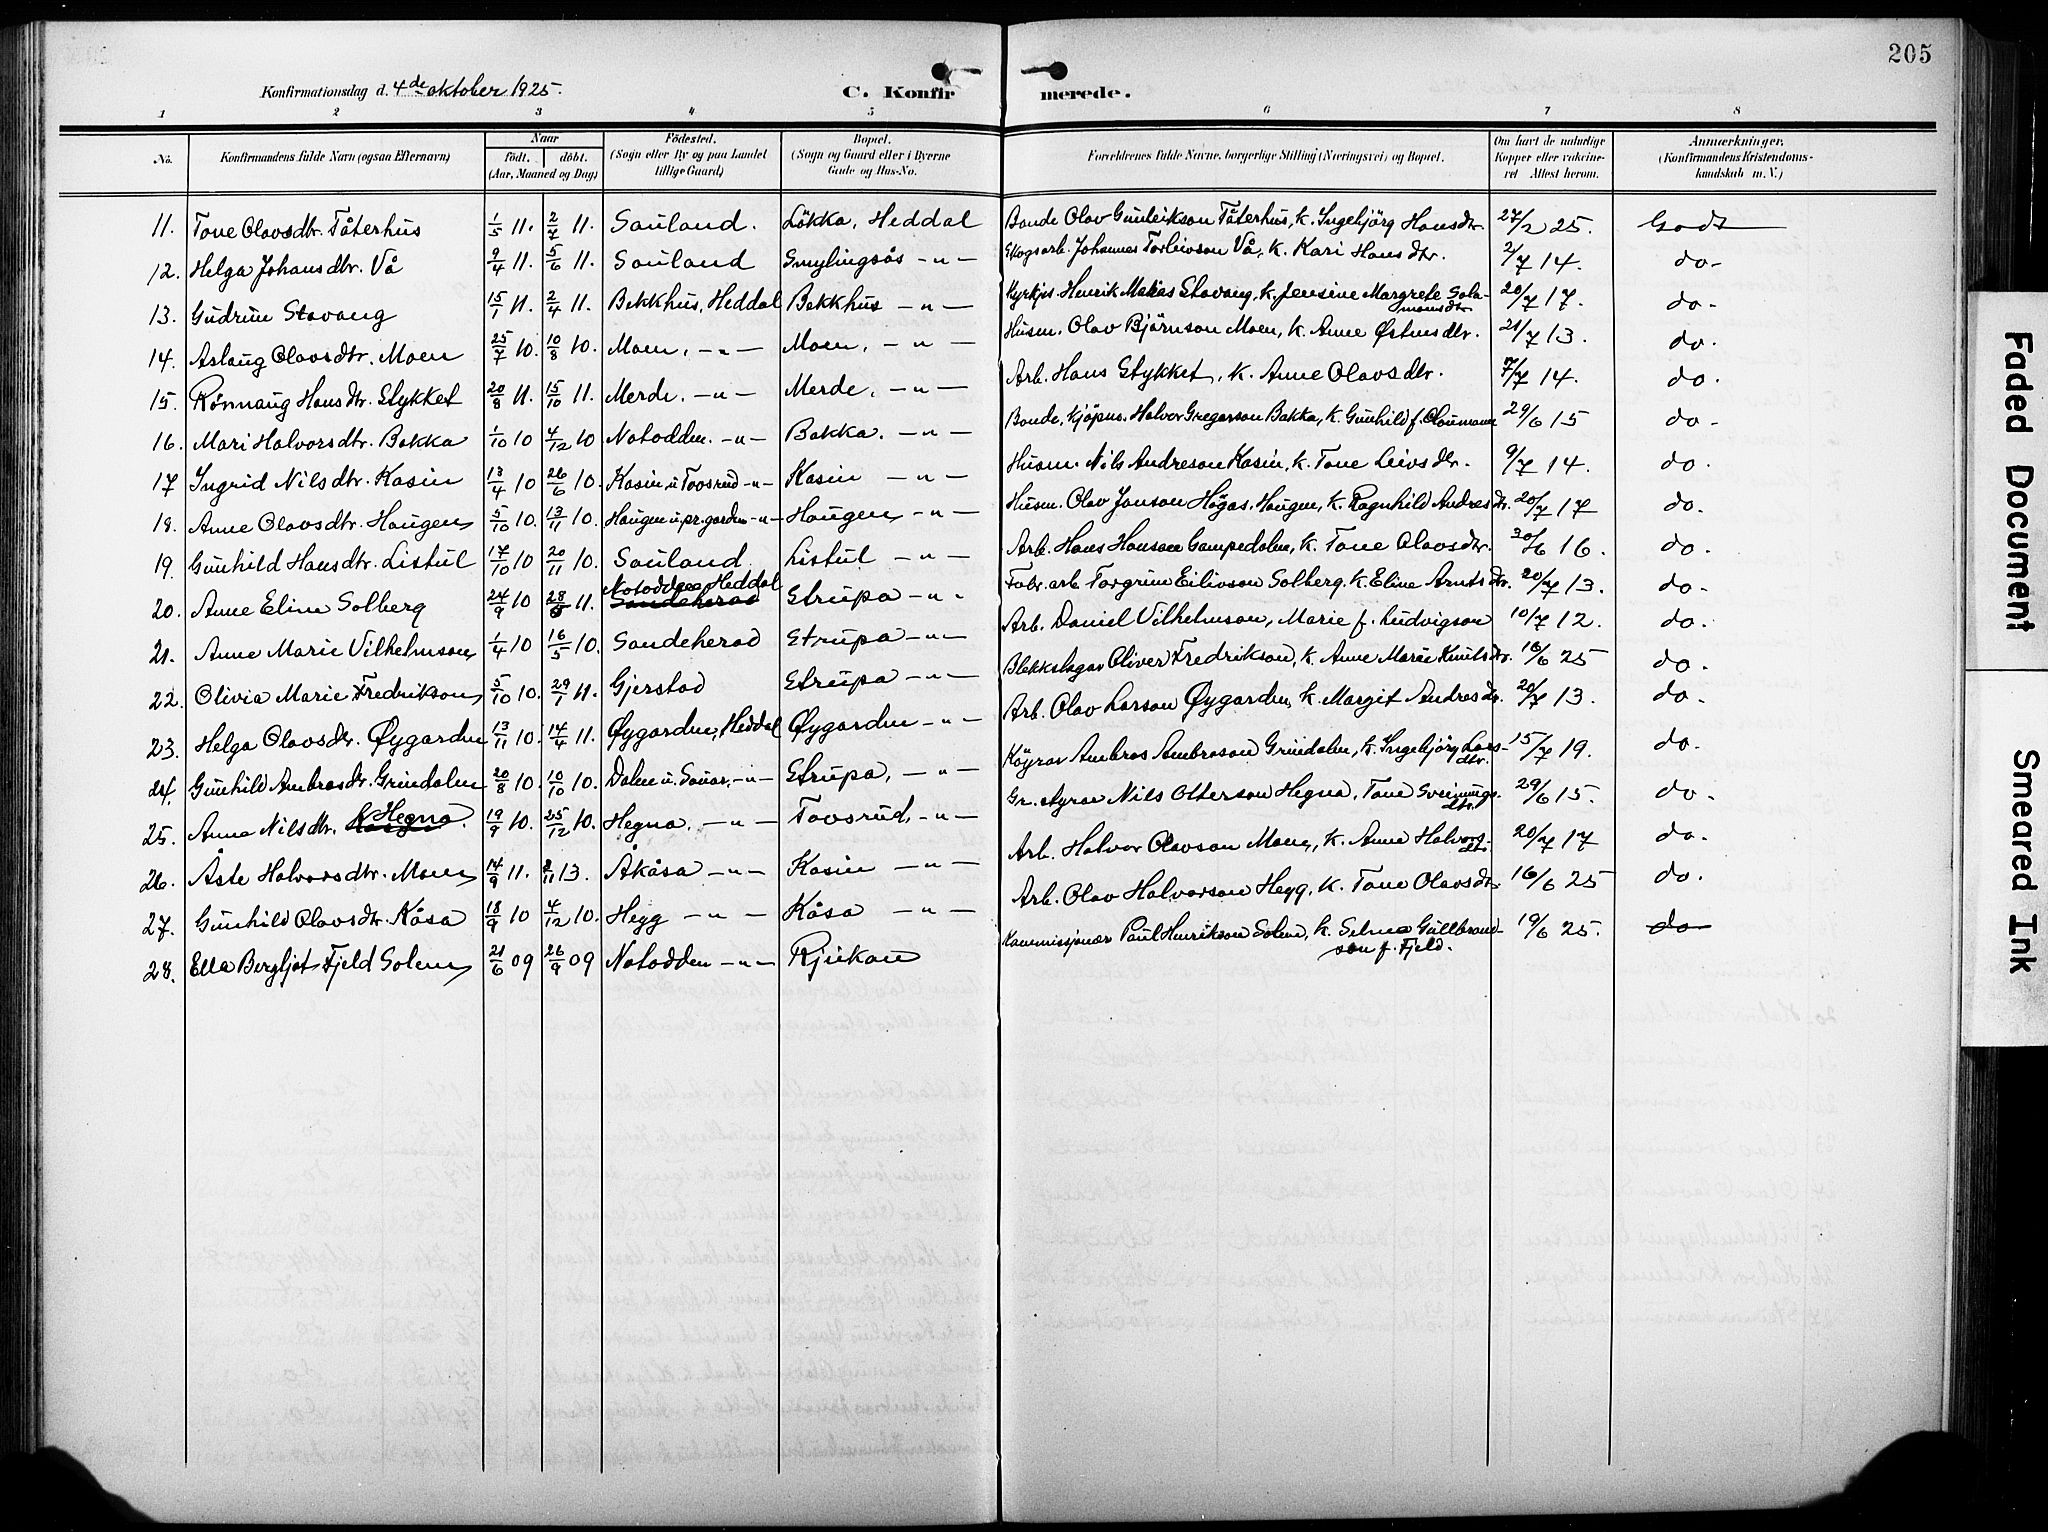 205
Konfirmationsdag d. 4de oktober 1925.
C. Konfirmerede.
1 2 3 4 5 6 7 8
No. Konfirmandens fulde Navn (ogsaa Efternavn) Naar födt. döbt. (Aar, Maaned og Dag) Födested. (Sogn eller By og paa Landet tillige Gaard) Bopæl. (Sogn og Gaard eller i Byerne Gade og Hus-No. Forældrenes fulde Navne, borgerlige Stilling (Næringsvei) og Bopæl. Om havt de naturlige Kopper eller vakcineret Attest herom. Anmærkninger. (Konfirmandens Kristendomskundskab m. V.)
11. Tone Olavsdtr. Tåterhus 1/5 11. 2/7 11. Sauland. Løkka, Heddal Bonde Olav Gunleikson Tåterhus, k. Ingebjørg Hansdtr. 27/2 25. Godt
12. Helga Johansdtr. Vå 9/4 11. 5/6 11. Sauland Smylingsås -"- Skogsarb. Johannes Torleivson Vå, k. Kari Hansdtr. 2/7 14. do-
13. Gudrun Stavang 15/1 11. 2/4 11. Bekkhus, Heddal Bekkhus -"- Kyrkjes. Henrik Matias Stavang, k. Jensine Margrete Salamonsdtr 20/7 17. do-
14. Aslaug Olavsdtr. Moen 25/7 10. 10/8 10. Moen, -"- Moen, -"- Husm. Olav Bjørnson Moen, k. Anne Østensdtr. 21/7 13. do.
15. Rønnaug Hansdtr. Stykket 20/8 11. 15/10 11. Merde. -"- Merde, -"- Arb. Hans Stykket, k. Anne Olavsdtr. 7/7 14. do.
16. Mari Halvorsdtr. Bakka 1/10 10 4/12 10 Notodden. -"- Bakka. -"- Bonde, kjøpm. Halvor Gregarson Bakka, k. Gunhild f. 29/6 15 do-
17 Ingrid Nilsdtr. Kasin 13/4 10 26/6 10. Kasin u. Tovsrud -"- Kasin -"- Husm. Nils Andreson Kasin, k. Tone Leivsdtr. 9/7 14. do.
18. Anne Olavsdtr. Haugen 5/10 10. 13/11 10. Haugen u. pr.garden -"- Haugen -"- Husm. Olav Janson Høgås, Haugen, k. Ragnhild Andresdtr. 20/7 17 do.
19. Gunhild Hansdtr. Listul 17/10 10 20/11 10. Sauland. Listul -"- Arb. Hans Hanson Gampedalen, k. Tone Olavsdtr. 30/6 16. do.
20. Anne Eline Solberg 24/9 10 28/ 11. Notodden Heddal Sandeherad Strupa -"- Fabr. arb. Torgrim Eilivson Solberg, k. Eline Arntsdtr. 20/7 13. do-
21. Anne Marie Vilhelmson 1/4 10 16/5 10. Sandeherad Strupa -"- Arb. Daniel Vilhelmson, Marie f. Ludvigson 10/7 12. do.
22. Olivia Marie Fredrikson 5/10 10. 29/1 11. Gjerstad Strupa -"- Blekkslagar Oliver Fredrikson, k. Anne Marie Knutsdtr. 16/6 25 do.
23. Helga Olavsdtr. Øygarden 13/11 10. 14/4 11. Øygarden, Heddal Øygarden -"- Arb. Olav Larson Øygarden, k. Margit Andresdtr. 20/7 13. do-
24. Gunhild Ambrosdtr. Grindalen 20/8 10. 10/10 10. Dalen u. Sauar, -"- Strupa, -"- Køyrar Ambros Ambroson Grindalen, k. Ingebjørg Larsdtr. 15/7 19. do-
25. Anne Nilsdtr. Hegna. 19/9 10. 25/12 10. Hegna, -"- Tovsrud, -"- Gr.styrar Nils Otterson Hegna, Tone Sveinungsdtr. 29/6 15. do-
26. Åste Halvorsdtr. Moen 14/9 11. 2/11 13. Åkåsa -"- Kasin -"- Arb. Halvor Olavson Moen, k. Anne Halvorsdtr. 20/7 17 do.
27. Gunhild Olavsdtr. Kåsa 18/9 10 4/12 10. Hegg -"- Kåsa -"- Arb. Olav Halvorson Hegg, k. Tone Olavsdtr 16/6 25 do.
28. Ella Bergljot Fjeld Solem 21/6 09 26/9 09 Notodden -"- Rjukan Kommissjonær Paul Henrikson Solem, k. Selma Gullbrandson f. Fjeld. 19/6 25. do
Faded Document
Smeared Ink